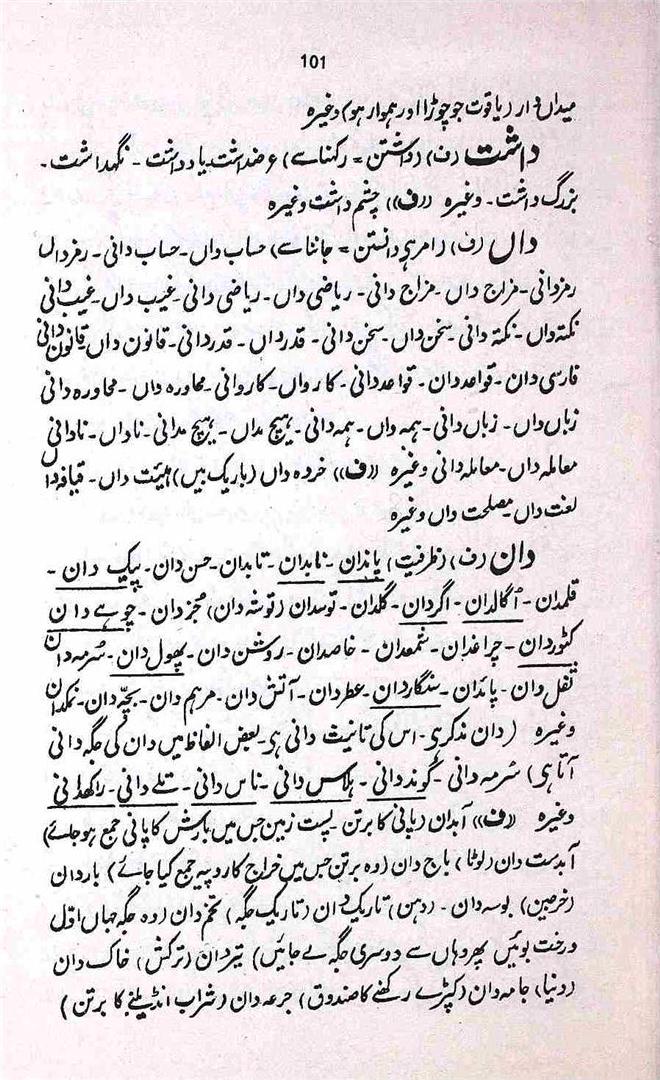 101
میداں دار (یاقوت جو چوڑا اور ہموار ہو) وغیرہ
داشت (ف) (داشتن = رکھنا سے) عرضداشت۔ یادداشت ۔ نگہداشت ۔
بزرگ داشت ۔ وغیرہ ((ف)) چشم داشت وغیرہ
داں (ف) (امر ہی دانستن = جاننا سے) حساب داں ۔ حساب دانی ۔ رمزداں
رمزدانی ۔ مزاج داں ۔ مزاج دانی ۔ ریاضی داں ۔ ریاضی دانی ۔ غیب داں ۔ غیب دانی
نکتہ داں ۔ نکتہ دانی ۔ سخن داں ۔ سخن دانی ۔ قدرداں ۔ قدردانی ۔ قانون داں ۔ قانون دانی
فارسی دان ۔ قواعد دان ۔ قواعد دانی ۔ کارواں ۔ کاروانی ۔ محاورہ داں ۔ محاورہ دانی
زباں داں ۔ زباں دانی ۔ ہمہ داں ۔ ہمہ دانی ۔ ہیچ مداں ۔ ہیچ مدانی ۔ ناداں ۔ نادانی
معاملہ داں ۔ معاملہ دانی وغیرہ ((ف)) خردہ داں (باریک بیں) ہیئت داں ۔ قیافہ داں
لغت داں مصلحت داں وغیرہ
دان (ف) (ظرفیت) پاندان ۔ نابدان ۔ تابدان ۔ حسن دان ۔ پیک دان ۔
قلمدان ۔ اگالدان ۔ اگردان ۔ گلدان ۔ توسدان (توشہ دان) مجزدان ۔ چوہے دان
کٹوردان ۔ چراغدان ۔ شمعدان ۔ خاصدان ۔ روشن دان ۔ پھول دان ۔ سرمہ دان
نفل دان ۔ پائدان ۔ سنگاردان ۔ عطردان ۔ آتش دان ۔ مرہم دان ۔ بچہ دان ۔ نمکدان
وغیرہ (دان مذکر ہی ۔ اس کی تانیث دانی ہی ۔ بعض الفاظ میں دان کی جگہ دانی
آتا ہی) سرمہ دانی ۔ گوند دانی ۔ ہلاس دانی ۔ ناس دانی ۔ تلے دانی ۔ راکھدانی
وغیرہ ((ف)) آبدان (پانی کا برتن ۔ پست زمین جس میں بارش کا پانی جمع ہو جائے)
آبدست دان (لوٹا) باج دان (وہ برتن جس میں خراج کا روپیہ جمع کیا جائے) باردان
(خرجین) بوسہ دان ۔ (دہن) تاریک دان (تاریک جگہ) تخم دان (وہ جگہ جہاں اوّل
درخت بوئیں پھر وہاں سے دوسری جگہ لے جائیں) تیردان (ترکش) خاک دان
(دنیا) جامہ دان (کپڑے رکھنے کا صندوق) جرعہ دان (شراب انڈیلنے کا برتن)